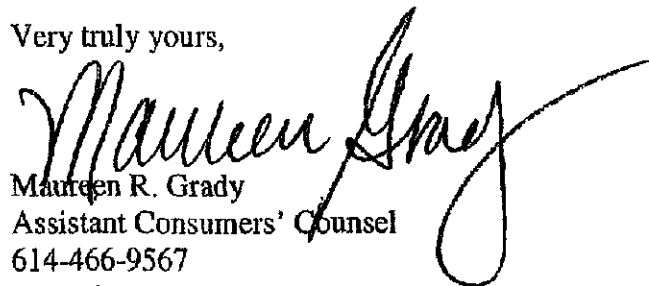 Very truly yours,
Maureen Grady
Maureen R. Grady
Assistant Consumers' Counsel
614-466-9567